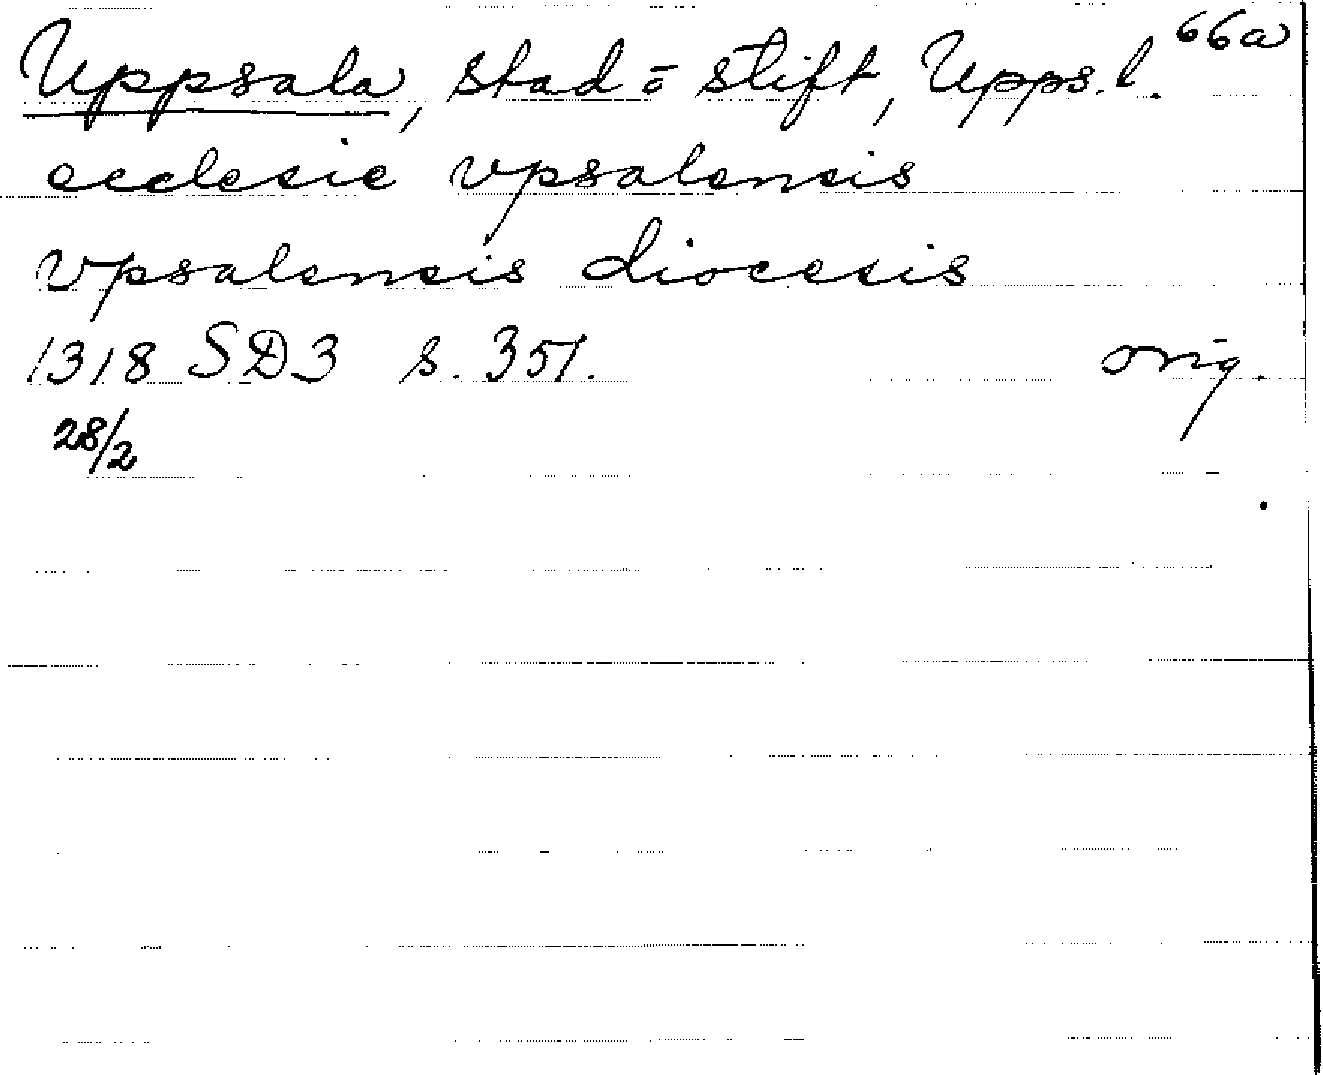 Uppsala, stad o stift, Upps. l. 66a
ecclesie vpsalensis
vpsalensis diocesis
1318 SD3 s. 351. orig.
28/2